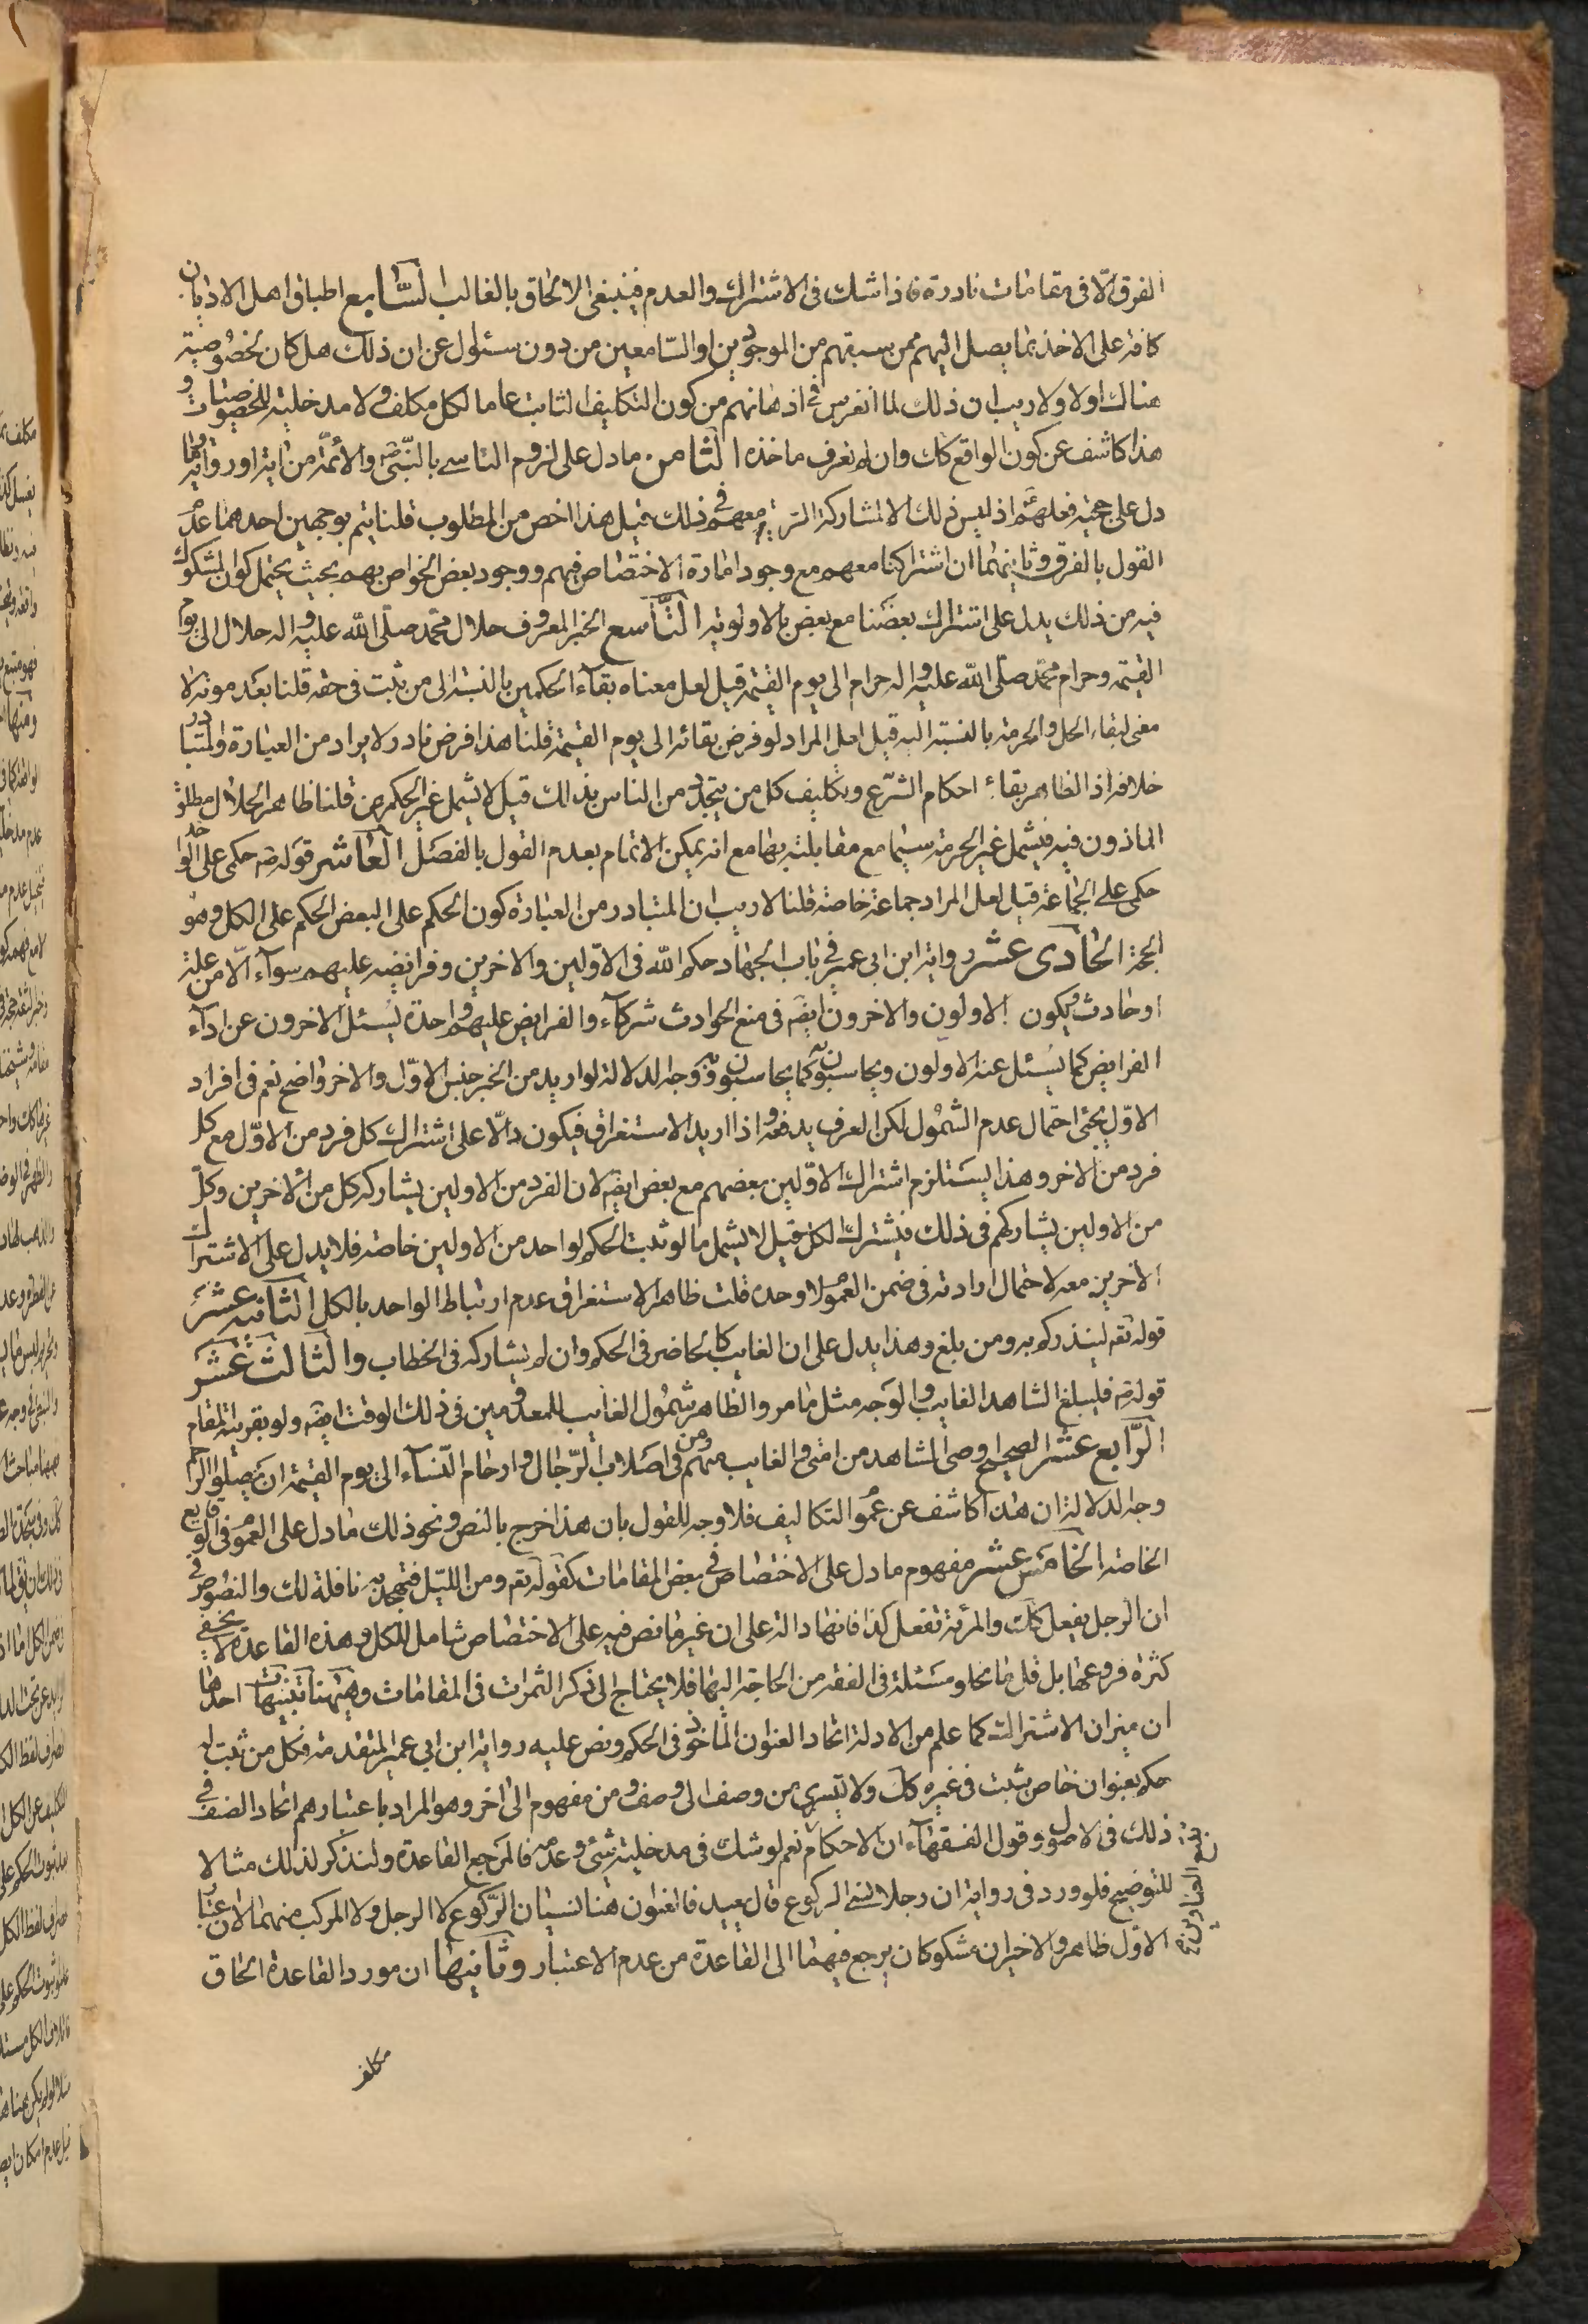 الفرق الّا فی مقامات نادرة فاذا شك فی الاشتراك والعدم فینبغی الالحاق بالغالب السّابع اطباق اهل الادیان
كافة علی الاخذ بما یصل الیهم ممن سبقهم من الموجودین او السّامعین من دون سئوال عن ان ذلك هل كان لخصوصیة
هناك اولا ولا ریب ان ذلك لما انغرس فی اذهانهم من كون التكلیف الثابت عاما لكل مكلف ولا مدخلیة للخصوصیات و
هذا كاشف عن كون الواقع كك وان لم نعرف ماخذه الثامن ما دل علی لزوم التاسی بالنّبیّ والأئمّة من ایة او روایة وما
دل علی حجیة فعلهم اذ لیس ذلك الا لمشاركة الرعیة معهم فی ذلك قیل هذا اخص من المطلوب قلنا یتم بوجهین احدهما عدم
القول بالفرق وثانیهما ان اشتراكنا معهم مع وجود امارة الاختصاص فیهم ووجود بعض الخواص بهم بحیث یحتمل كون المشكوك
فیه من ذلك یدل علی اشتراك بعضنا مع بعض بالاولویة التّاسع الخبر المعروف حلال محمّد صلّی اللّه علیه واله حلال الی یوم
القیٰمة وحرام محمّد صلّی اللّه علیه واله حرام الی یوم القیٰمة قیل لعل معناه بقآء الحكمین بالنسبة الی من ثبت فی حقه قلنا بعد موته لا
معنی لبقاء الحل والحرمة بالنسبة الیه قیل لعل المراد لو فرض بقائه الی یوم القیٰمة قلنا هذا فرض نادر لا یراد من العبارة والمتبادر
خلافه اذ الظاهر بقاء احكام الشّرع وتكلیف كل من یتجدد من الناس بذلك قیل لا یشمل غیر الحكمین قلنا ظاهر الحلال مطلق
الماذون فیه فیشمل غیر الحرمة سیّما مع مقابلته بها مع انه یمكن الاتمام بعدم القول بالفصل العاشر قوله ص حكمی علی الواحد
حكمی علی الجماعة قیل لعل المراد جماعة خاصة قلنا لا ریب ان المتبادر من العبارة كون الحكم علی البعض الحكم علی الكل وهو
الحجة الحادی عشر روایة ابن ابی عمیر فی باب الجهاد حكم اللّه فی الاوّلین والاخرین وفرایضه علیهم سوآء الّا من علة
او حادث یكون الاولون والاخرون ایضا فی منع الحوادث شركآء والفرایض علیهم واحدة یسئل الاخرون عن ادآء
الفرایض كما یسئل عنه الاولون ویحاسبون كما یحاسبون به ووجه الدلالة لو ارید من الخبر جنس الاوّل والاخر واضح نعم فی افراد
الاوّل یجئ احتمال عدم الشمول لكن العرف یدفعه واذا ارید الاستغراق فیكون دالّا علی اشتراك كل فرد من الاوّل مع كل
فرد من الاخر وهذا یستلزم اشتراك الاوّلین بعضهم مع بعض ایضا لان الفرد من الاولین یشاركه كل من الاخرین وكلّ
من الاولین یشاركهم فی ذلك فیشترك الكل قیل لا یشمل ما لو ثبت الحكم لواحد من الاولین خاصة فلا یدل علی الاشتراك
الاخرین معه لاحتمال ارادته فی ضمن العموم لا وحده قلت ظاهر الاستغراق عدم ارتباط الواحد بالكل الثانیه عشر
قوله تعم لینذركم به ومن بلغ وهذا یدل علی ان الغایب كالحاضر فی الحكم وان لم یشاركه فی الخطاب والثالث عشر
قوله ص فلیبلغ الشاهد الغایب والوجه مثل ما مر والظاهر شمول الغایب للمعدومین فی ذلك الوقت ایضا ولو بقرینة المقام
الرّابع عشر الصحیح اوصی الشاهد من امتی والغایب منهم ومن فی اصلاب الرّجال وارحام النّسآء الی یوم القیٰمة ان یصلوا الرحم
وجه الدلالة ان هذا كاشف عن عموم التكالیف فلا وجه للقول بان هذا خرج بالنص ونحو ذلك ما دل علی العموم فی الوقایع
الخاصة الخامس عشر مفهوم ما دل علی الاختصاص فی بعض المقامات كقوله تعم ومن اللیل فتهجد به نافلة لك والنصوص فی
ان الرجل یفعل كك والمرئة تفعل كذا فانها دالة علی ان غیر ما نص فیه علی الاختصاص شامل للكل وهذه القاعدة لا یخفی
كثرة فروعها بل قل ما یخلو مسئلة فی الفقه من الحاجة الیها فلا یحتاج الی ذكر الثمرات فی المقامات وهیهنا تنبیهات احدها
ان میزان الاشتراك كما علم من الادلة اتحاد العنوان الماخوذ فی الحكم ونص علیه روایة ابن ابی عمیر المتقدمة فكل من ثبت له
حكم بعنوان خاص یثبت فی غیره كك ولا یسری من وصف الی وصف ومن مفهوم الی اخر وهو المراد باعتبارهم اتحاد الصنف فی
ذلك فی الاصول وقول الفقهآء ان الاحكام نعم لو شك فی مدخلیة شیء وعدمه فالمرجع القاعدة ولنذكر لذلك مثالا
للتوضیح فلو ورد فی روایة ان رجلا نسی الركوع قال یعید فالعنوان هنا نسیان الرّكوع لا الرجل ولا المركب منهما لان عنوان
الاوّل ظاهر والاخیران مشكوكان یرجع فیهما الی القاعدة من عدم الاعتبار وثانیها ان مورد القاعدة الحاق
مكلف